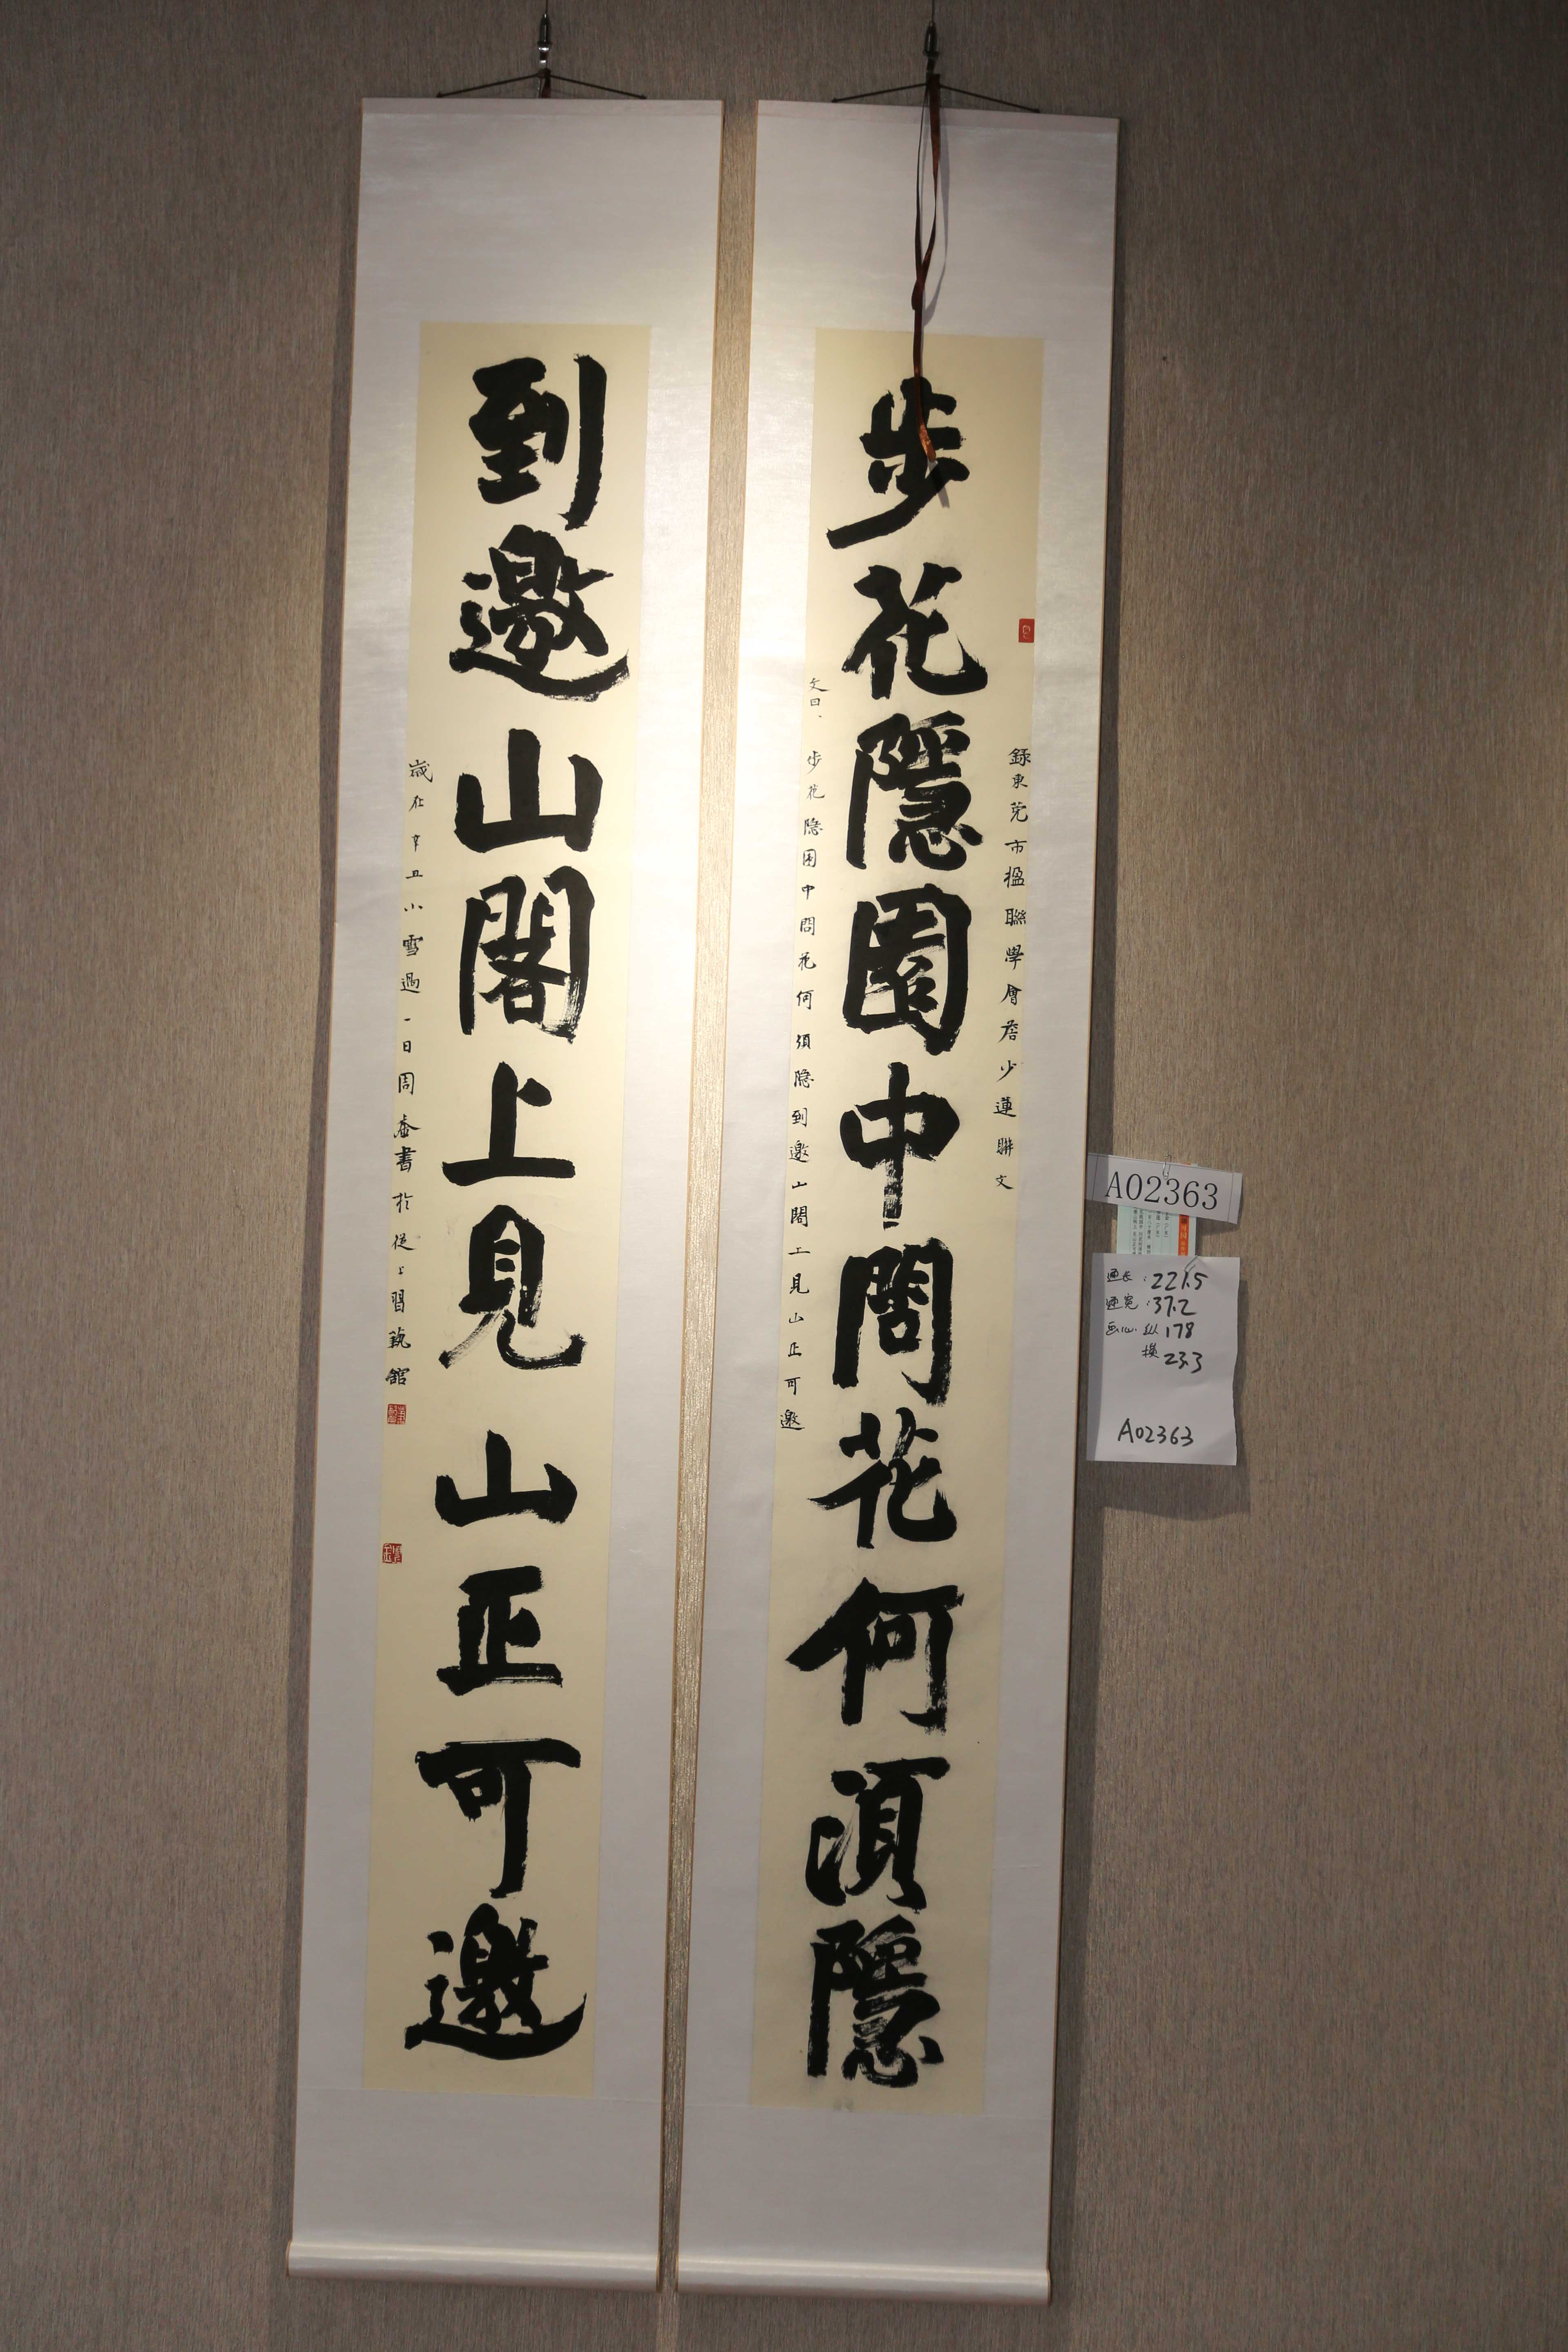 錄東莞市楹聯學會詹少蓮聯文
步花隱園中問花何湏隱
文曰、步花隱園中問花何須隱到邀山閣上見山正可邀
到邀山閣上見山正可邀
歲在辛丑小雪過一日周書於從上習藝館
A02363
通长:221.5
通宽:37.2
画心:纵178
横23.3
A02363